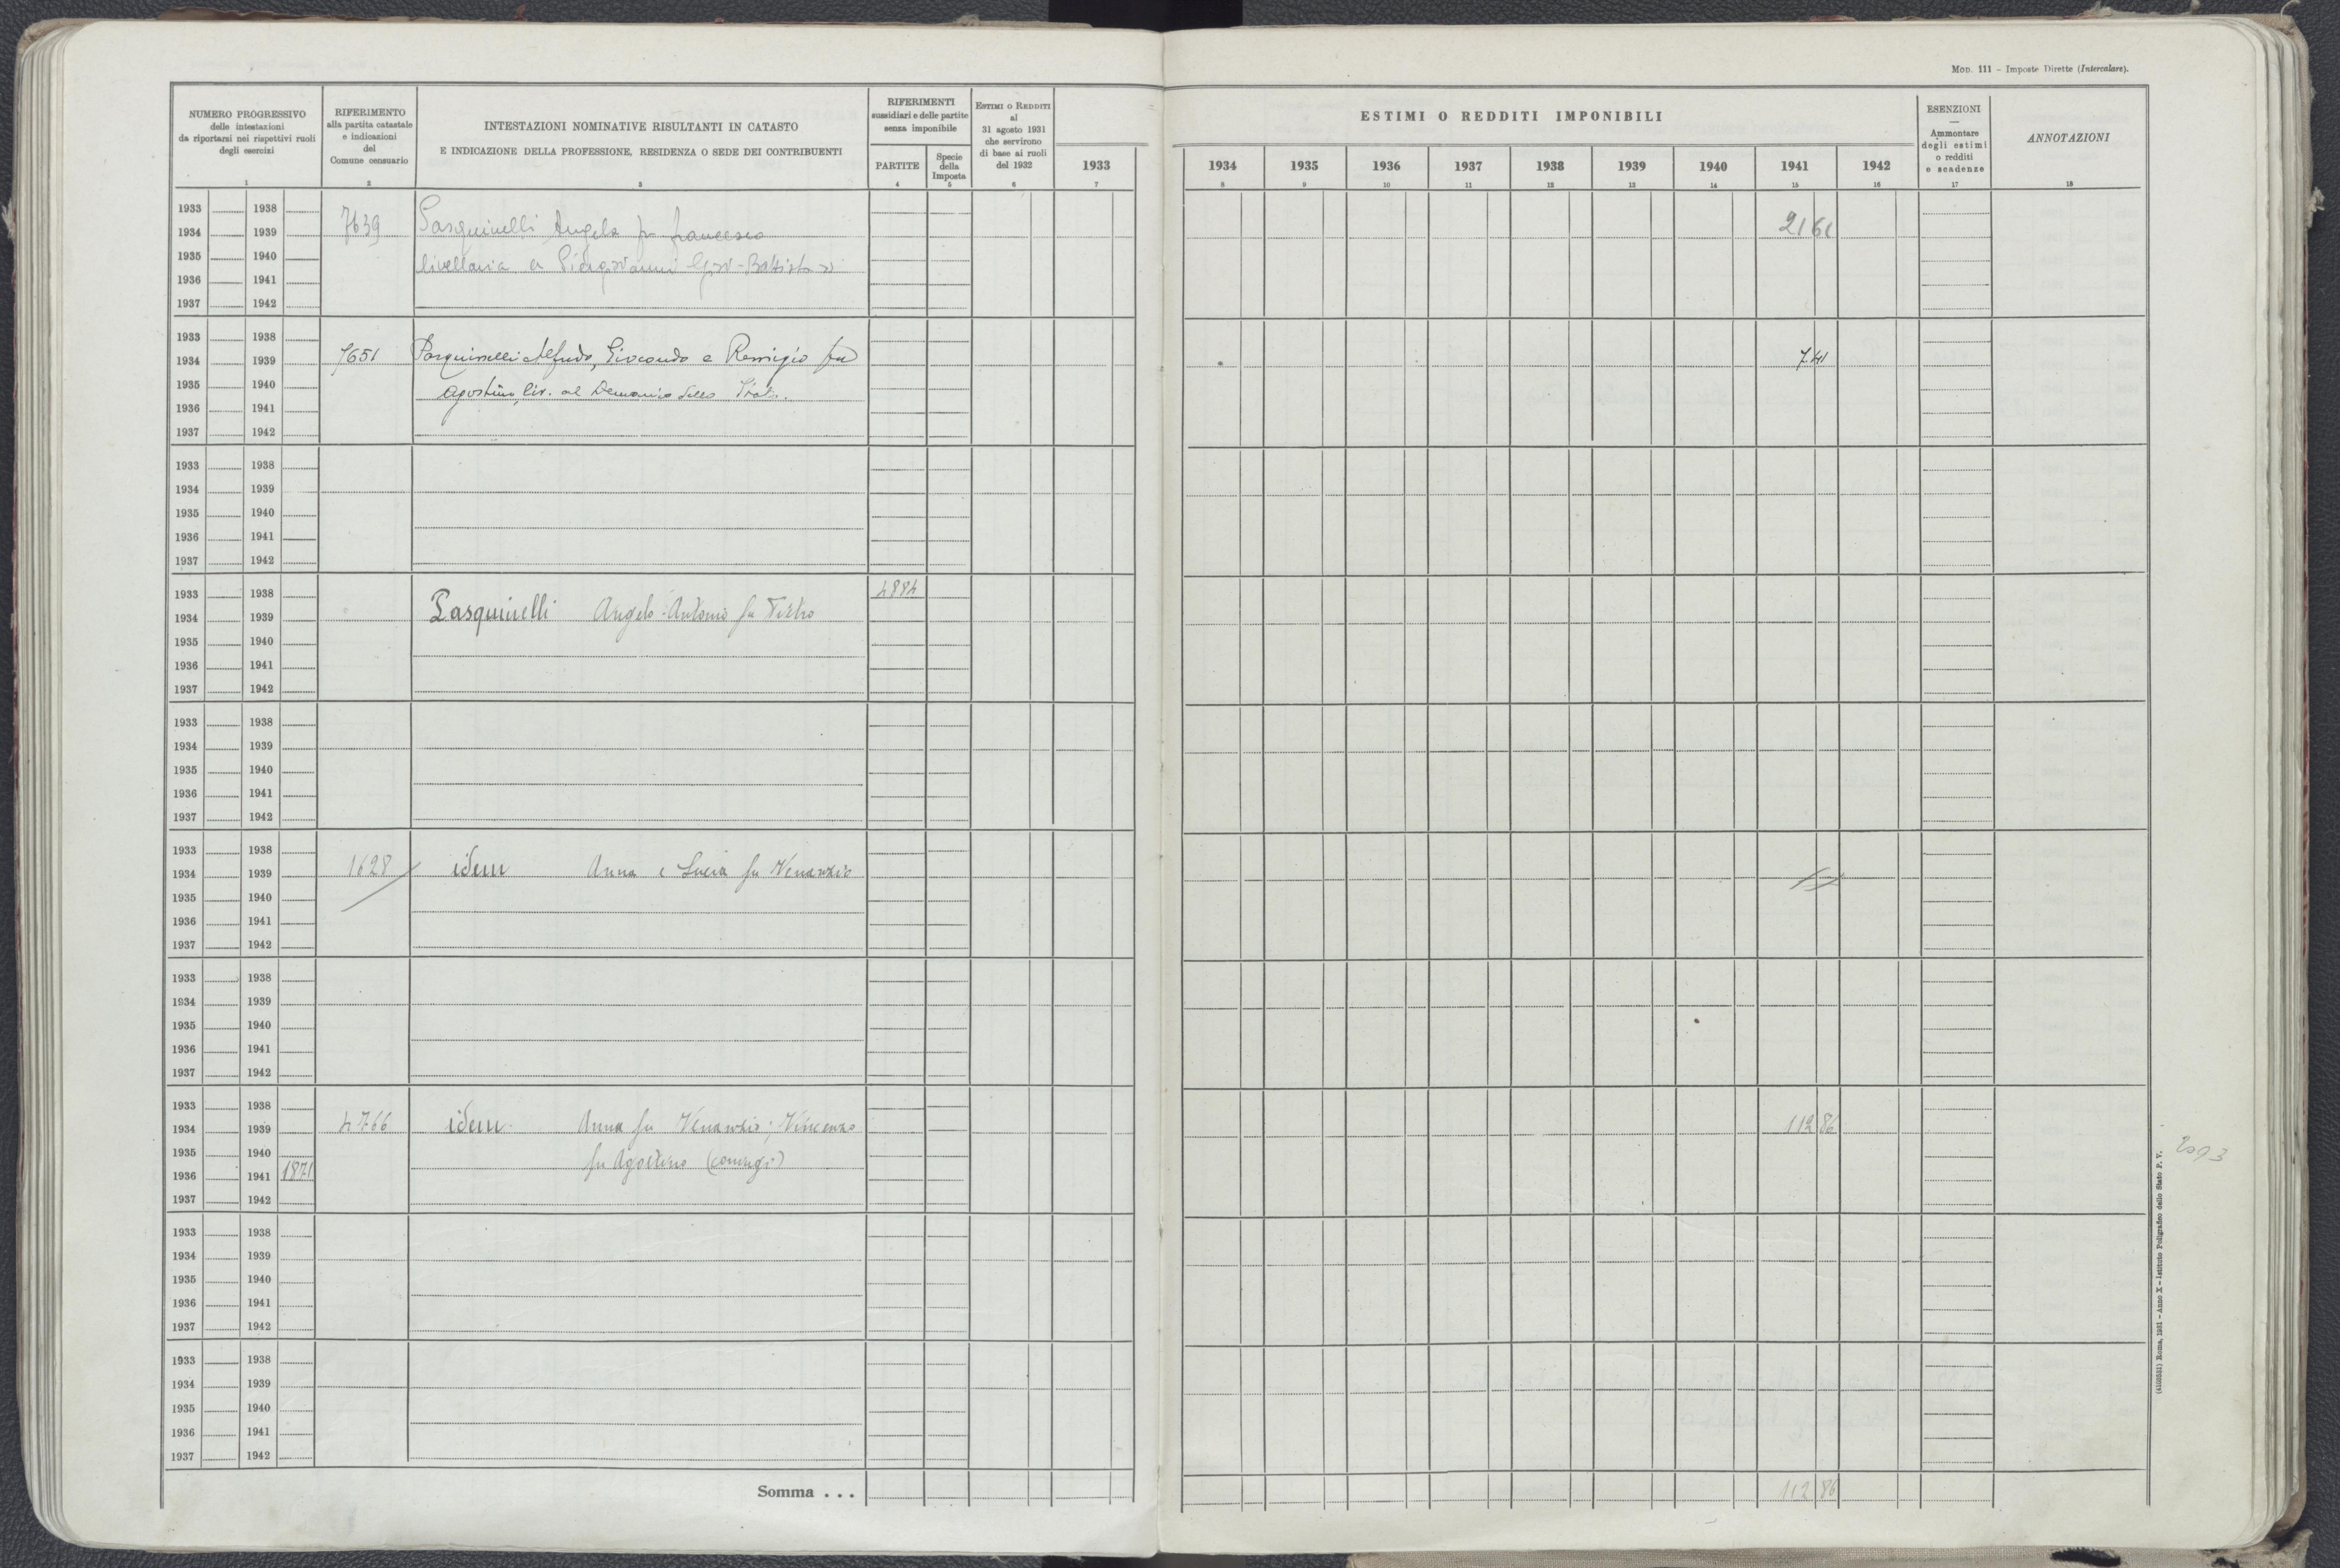 Mod. 111 – Imposte Dirette (Intercalare).
NUMERO PROGRESSIVO
delle intestazioni
da riportarsi nei rispettivi ruoli
degli esercizi
1
RIFERIMENTO
alla partita catastale
e indicazioni
del
Comune censuario
2
INTESTAZIONI NOMINATIVE RISULTANTI IN CATASTO
E INDICAZIONE DELLA PROFESSIONE, RESIDENZA O SEDE DEI CONTRIBUENTI
3
RIFERIMENTI
sussidiari e delle partite
senza imponibile
PARTITE
4
Specie
della
Imposta
5
ESTIMI O REDDITI
al
31 agosto 1931
che servirono
di base ai ruoli
del 1932
6
1933
7
ESTIMI O REDDITI IMPONIBILI
1934 1935 1936 1937 1938 1939 1940 1941 1942
8 9 10 11 12 13 14 15 16
ESENZIONI
—
Ammontare
degli estimi
o redditi
e scadenze
17
ANNOTAZIONI
18
1933 1938
1934 1939 7639 Pasquinelli Angela fu Francesco 21 61
1935 1940 livellaria a Piergiovanni Gio-Battista
1936 1941
1937 1942
1933 1938
1934 1939 7651 Pasquinelli Alfredo, Giocondo e Remigio fu 7.41
1935 1940
1936 1941 Agostino, liv. al Demanio dello Stato.
1937 1942
1933 1938
1934 1939
1935 1940
1936 1941
1937 1942
1933 1938 4884
1934 1939 Pasquinelli Angelo-Antonio fu Pietro
1935 1940
1936 1941
1937 1942
1933 1938
1934 1939
1935 1940
1936 1941
1937 1942
1933 1938
1934 1939 1628 idem Anna e Lucia fu Venanzio
1935 1940
1936 1941
1937 1942
1933 1938
1934 1939
1935 1940
1936 1941
1937 1942
1933 1938
1934 1939 4766 idem Anna fu Venanzio; Vincenzo 112 86
1935 1940 fu Agostino (coniugi)
1936 1941 1871
1937 1942
1933 1938
1934 1939
1935 1940
1936 1941
1937 1942
1933 1938
1934 1939
1935 1940
1936 1941
1937 1942
Somma . . . 112 86
(4100531) Roma, 1931 – Anno X – Istituto Poligrafico dello Stato P. V.